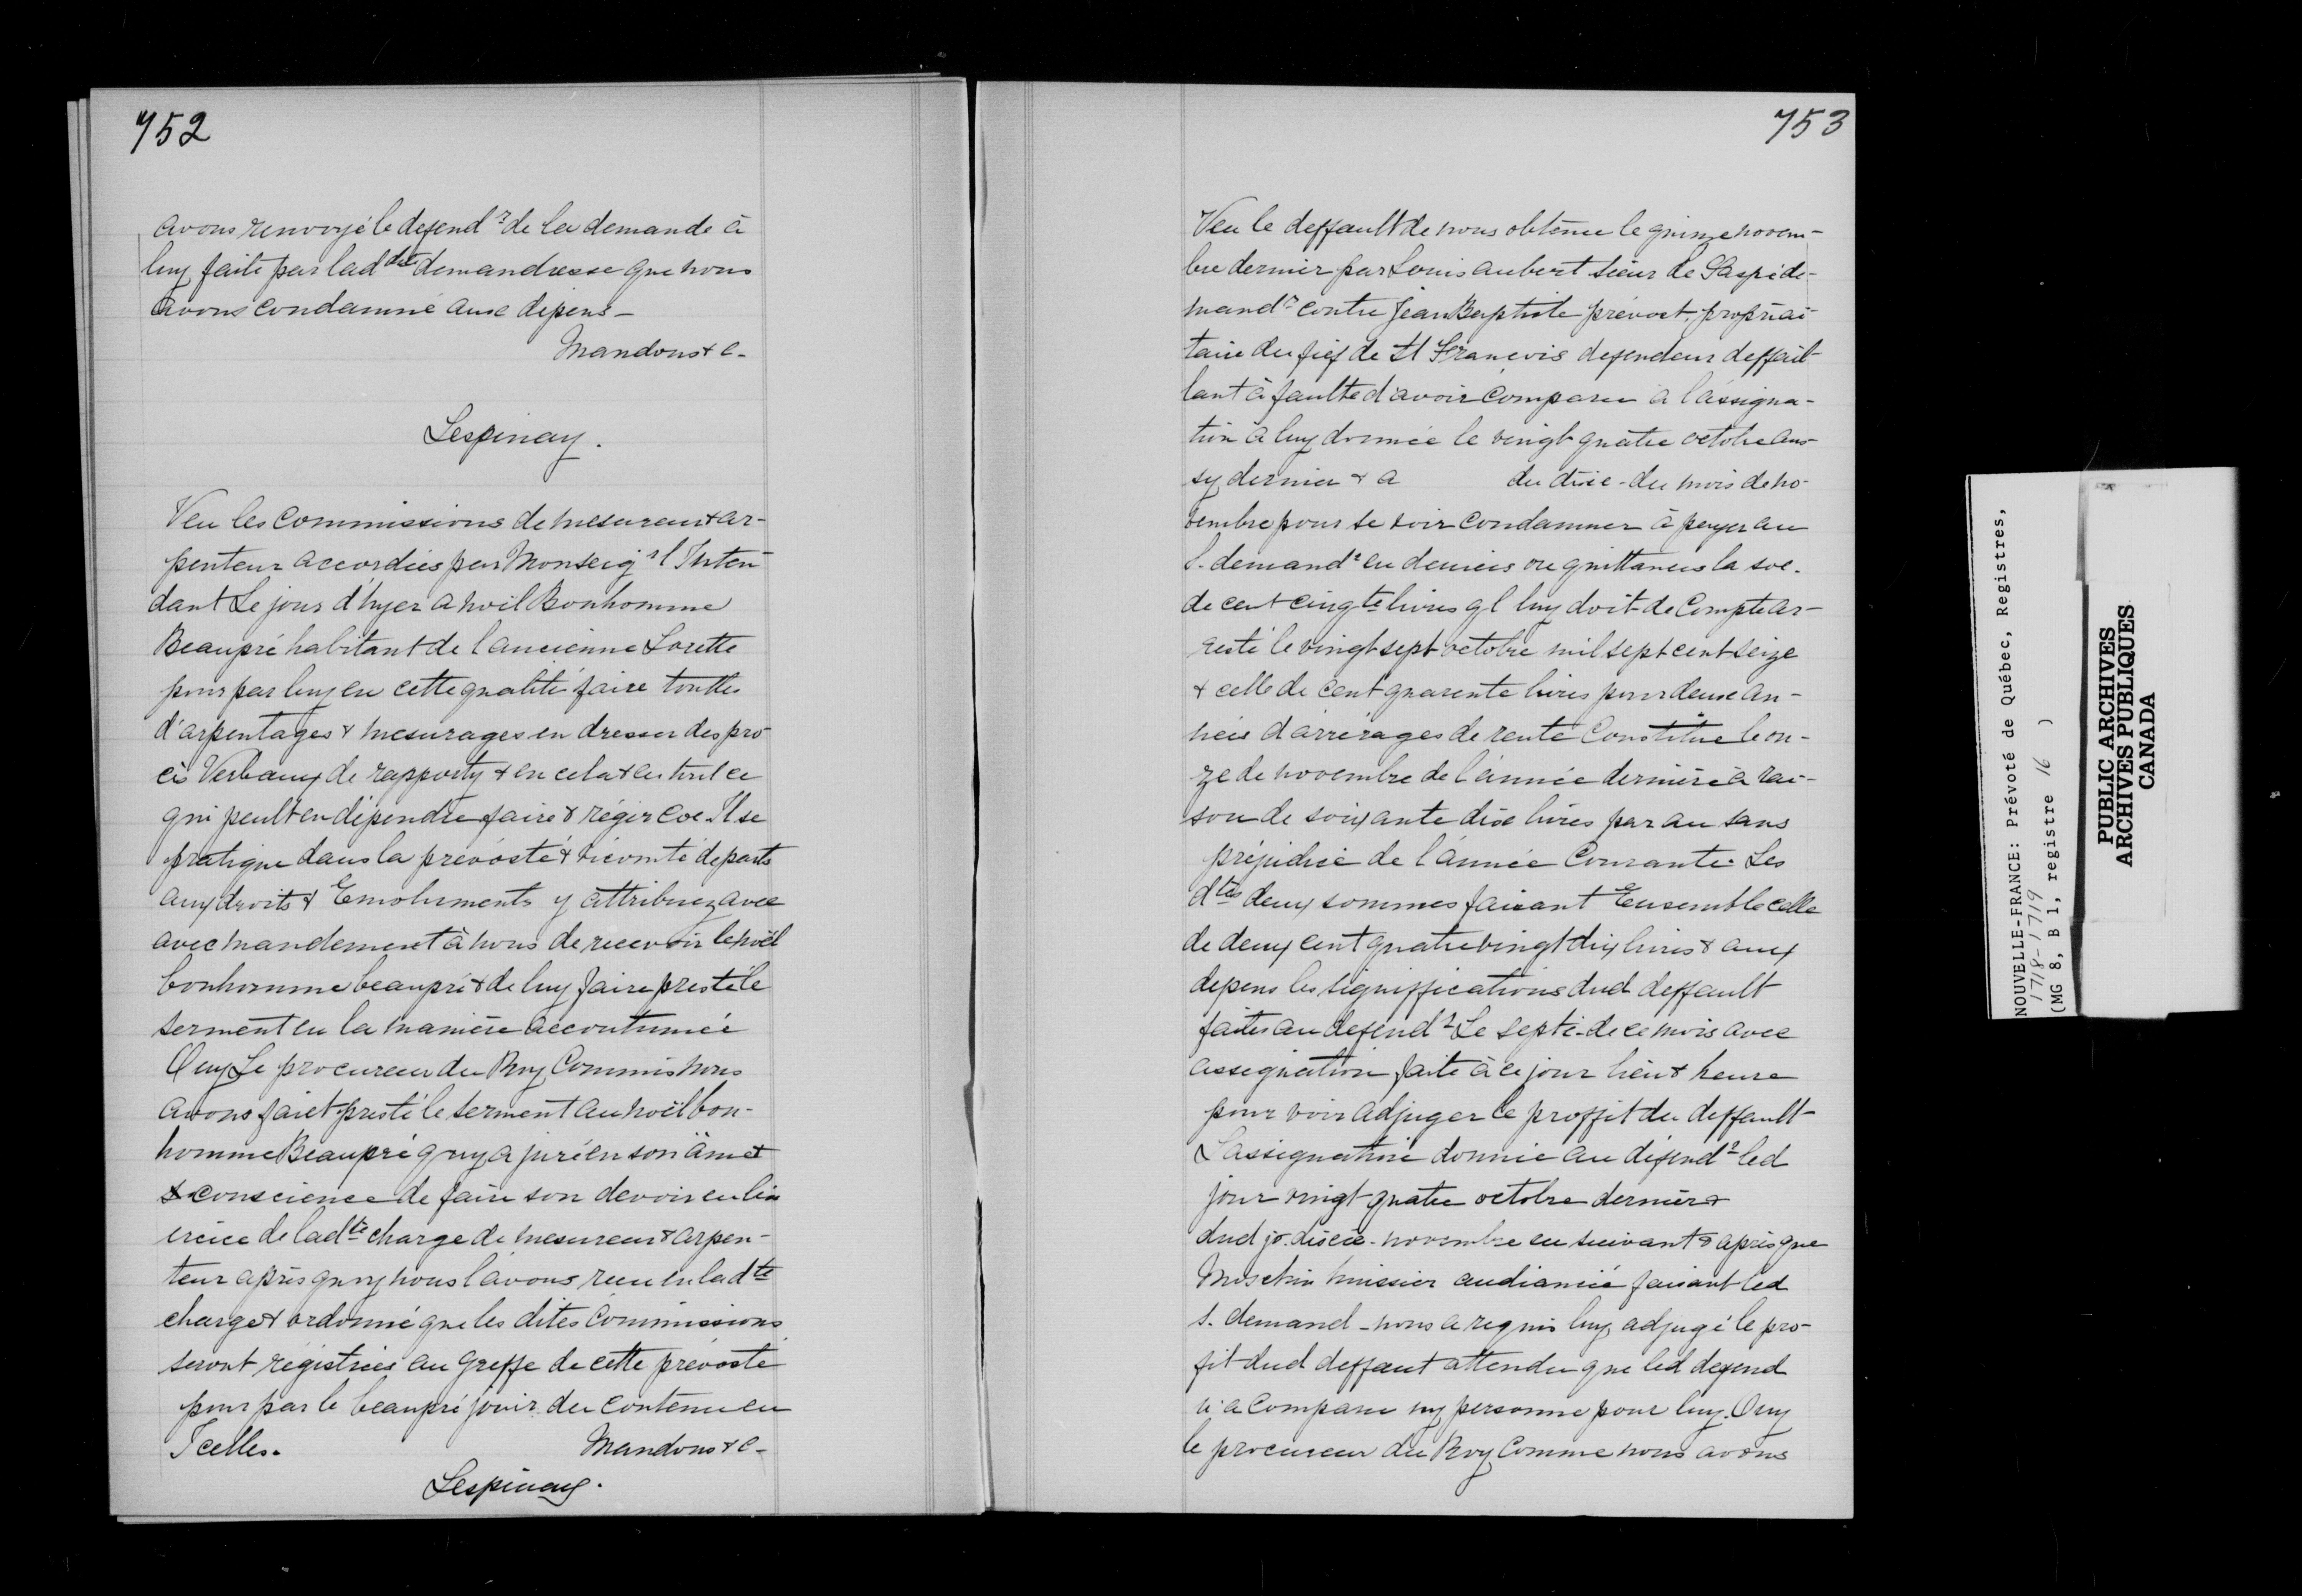 752
avons renvoyé le defendr de la demande à
luy faite par lad dte demandresse que nous
avons condamné aux dépens -
Mandons & c -
Lespinay.
Veu les Commissions de mesureur & ar-
penteur accordées par Monseigr l'Inten-
dant Le jour d'hyer a noël Bonhomme
Beaupré habitant de l'ancienne Lorette
pour par luy en cette qualité faire touttes
d'arpentages & mesurages en dresser des pro-
cès Verbaux de rapports & en cela & en tout ce
qui peult en dépendre faire & régir coe. Il se
pratique dans la prévosté & vicomté de paris
aux droits & Emoluments y attribuez avec
avec mandement à nous de recevoir le noël
bonhomme beaupré & de luy faire presté le
serment en la manière accoutumée
Ouy Le procureur du Roy Commis nous
avons faict presté le serment au noël bon-
homme Beaupré quy a juré en son âme &
& conscience de faire son devoir en l'ex
ercice de ladte charge de mesureur & arpen-
teur après quoy nous l'avons reçu en ladte
charge & ordonné que les dites Commissions
seront régistrées au greffe de cette prévosté
pour par le beaupré jouir du contenu en
Icelles. Mandons & c -
Lespinay.
753
Veu le deffault de nous obtenu le quinze novem-
bre dernier par Louis aubert sieur de Gaspé de-
mandr contre Jean Baptiste prévost, propriai-
taire du fief de St François defendeur deffail-
lant à faulte d'avoir Comparu à l'assigna-
tion à luy donnée le vingt quatre octobre aus-
sy dernier & a du dixe - du mois de no-
vembre pour se voir condamner à payer au
s. demandr en deniers ou quittances la soe.
de cent cinqte livres ql luy doit de Compte ar-
resté le vingt sept octobre mil sept cent seize
& celle de cent quarente livres pour deux an-
nées d'arrérages de rente Constitüe le on-
ze de novembre de l'année dernière à rai-
son de soixante dix livres par an sans
préjudice de l'année Courante. Les
dtes deux sommes faisant Ensemble celle
de deux cent quatre vingt dix livres & aux
depens les significations dud deffault
faites au defendr Le septe. de ce mois avec
assignation faite à ce jour lieu & heure
pour voir adjuger le proffit du deffault
L'assignation donnée au défendr led
jour vingt quatre octobre dernier &
dud jo. dixie - novembre en suivant & après que
Meschin huissier audiancié faisant led
s. demand - nous a requis luy adjugé le pro-
fit dud deffaut attendu que led defend
n'a Comparu ny personne pour luy. Ouy
le procureur du Roy Comme nous avons
NOUVELLE-FRANCE: Prévoté de Québec, Registres,
1718-1719
(MG 8, B 1, registre 16 )
PUBLIC ARCHIVES
ARCHIVES PUBLIQUES
CANADA